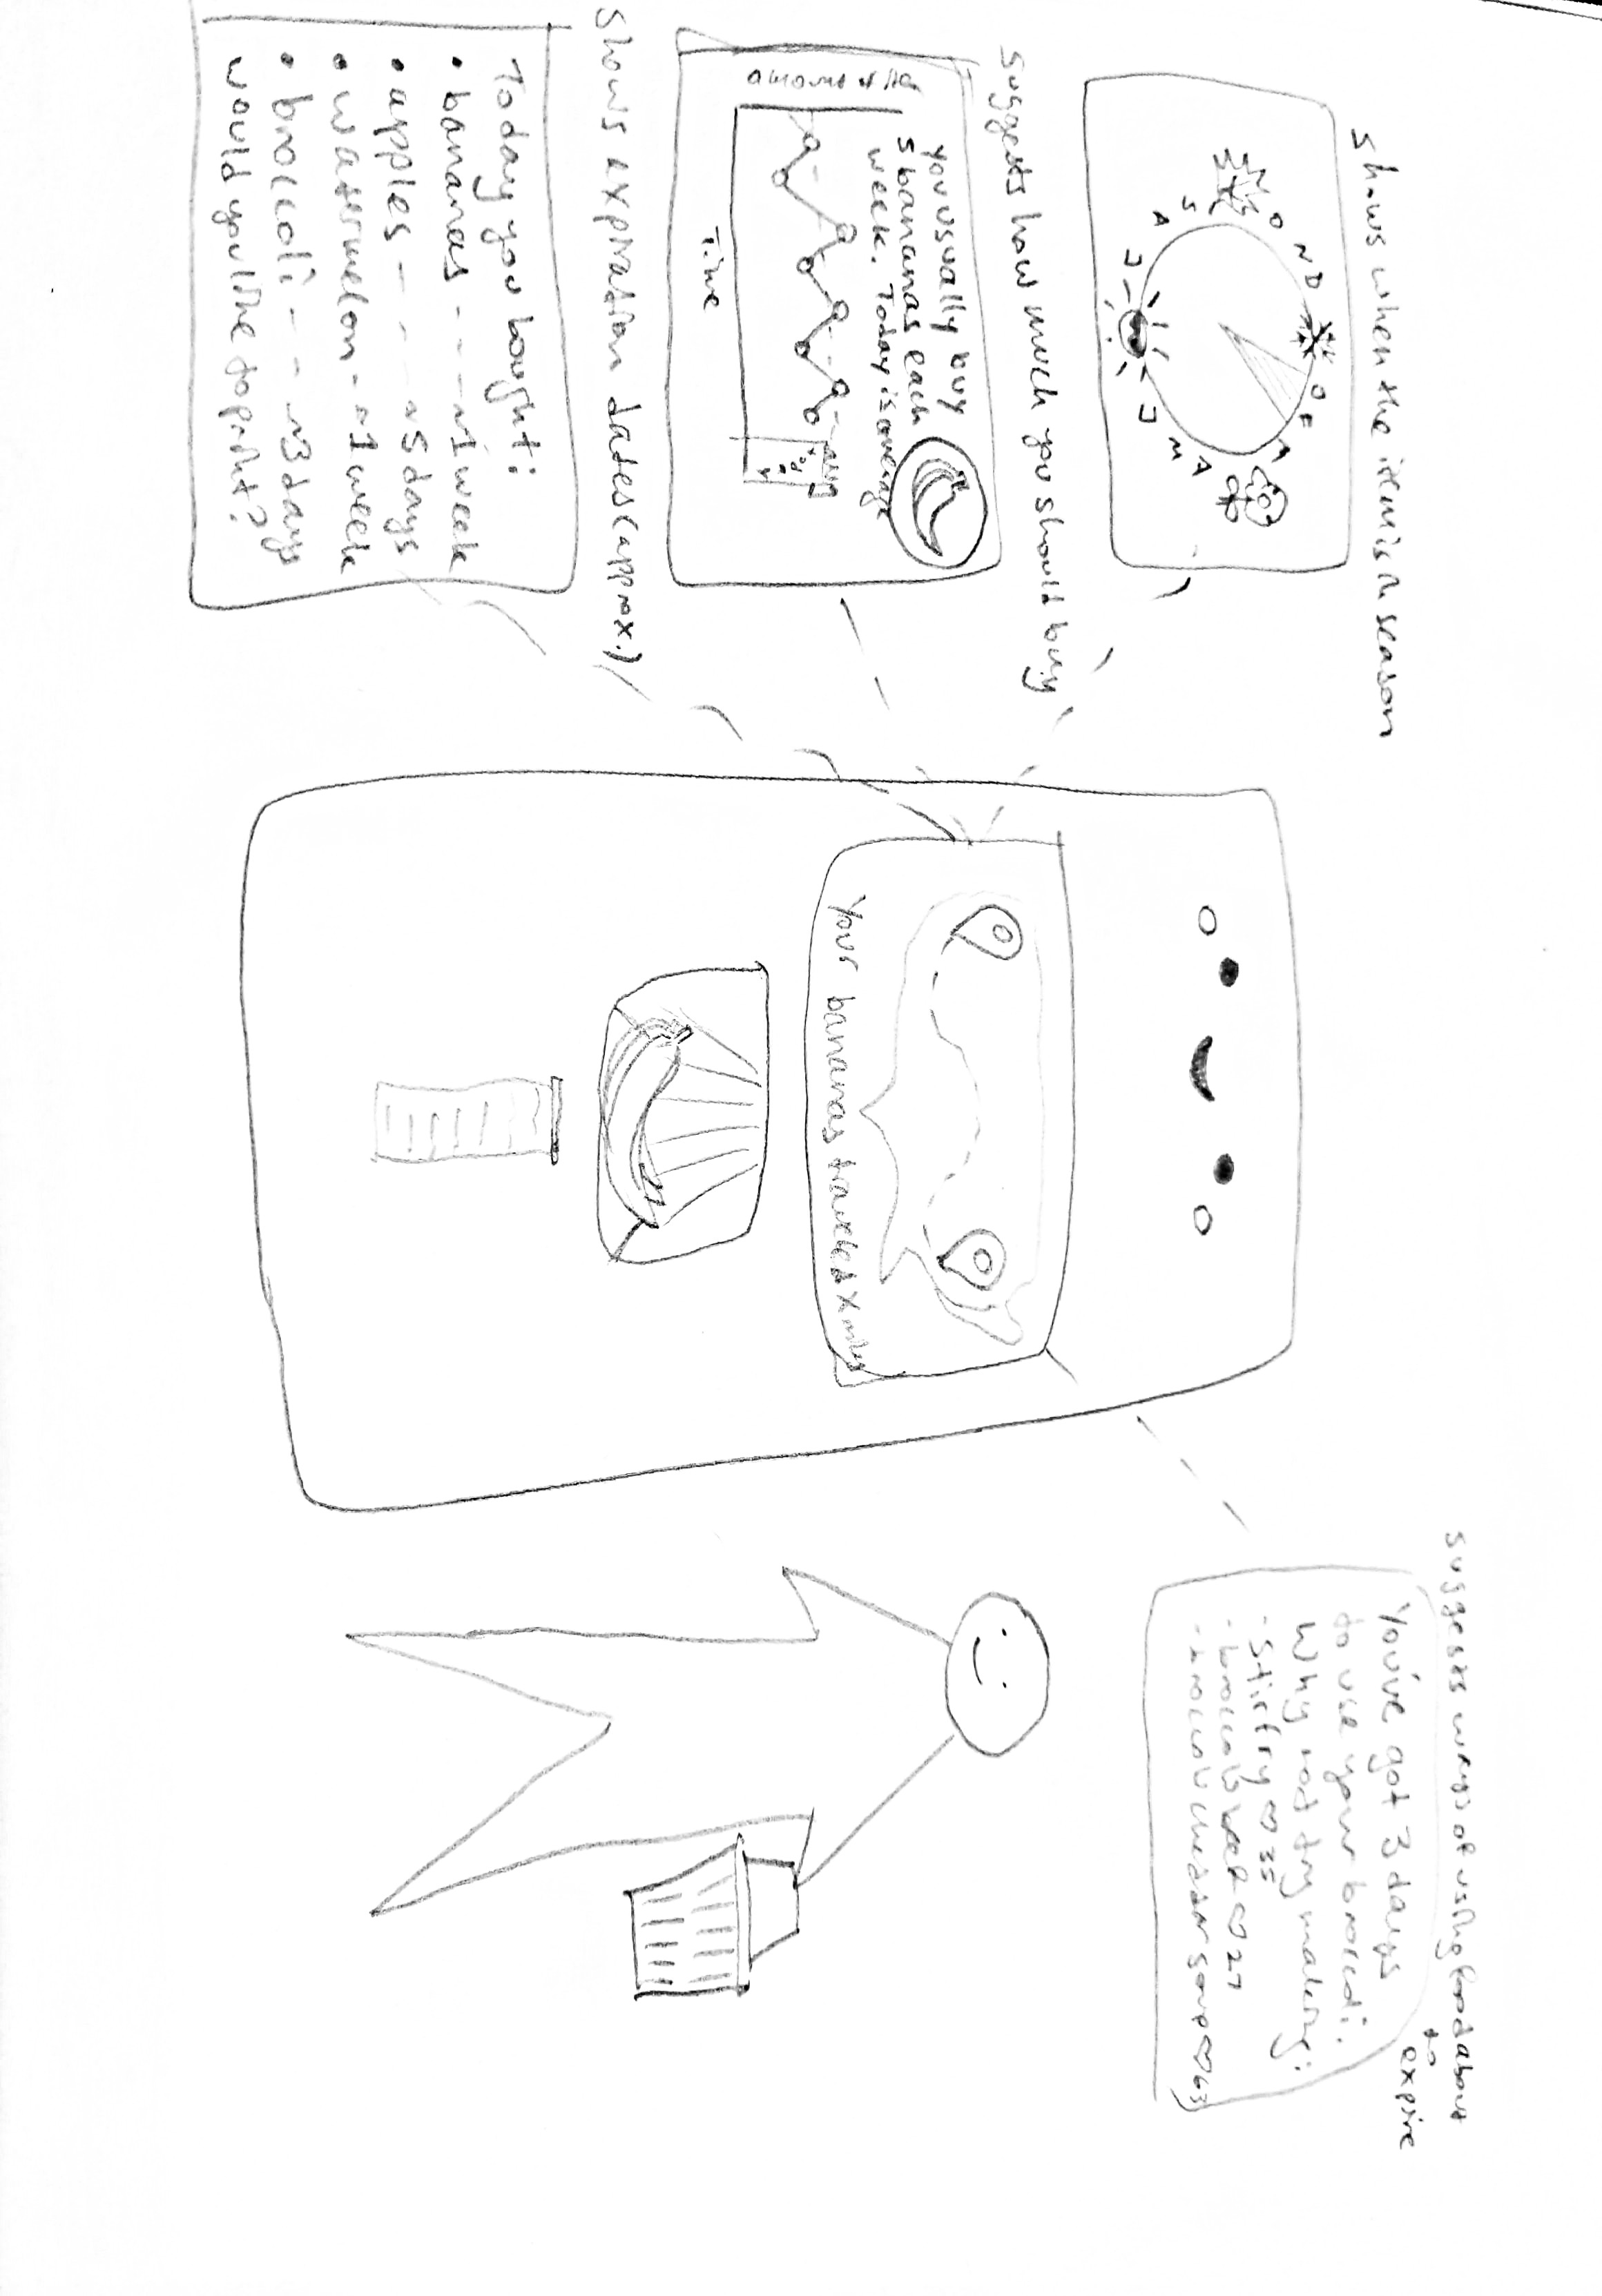 shows when the item is in season
O
N
D
J
F
M
A
M
J
J
A
S
suggests how much you should buy
you usually buy
5 bananas each
week. Today is average
amount of
Time
avg
shows expiration dates (approx.)
Today you bought:
• bananas - - - ~1 week
• apples - - - ~5 days
• watermelon - ~1 week
• broccoli - - - ~3 days
would you like to print?
Your bananas traveled x miles
suggests ways of using food about
to
expire
You've got 3 days
to use your broccoli.
Why not try making:
- Stirfry ♡ 35
- broccoli beef ♡ 27
- broccoli cheddar soup ♡ 63